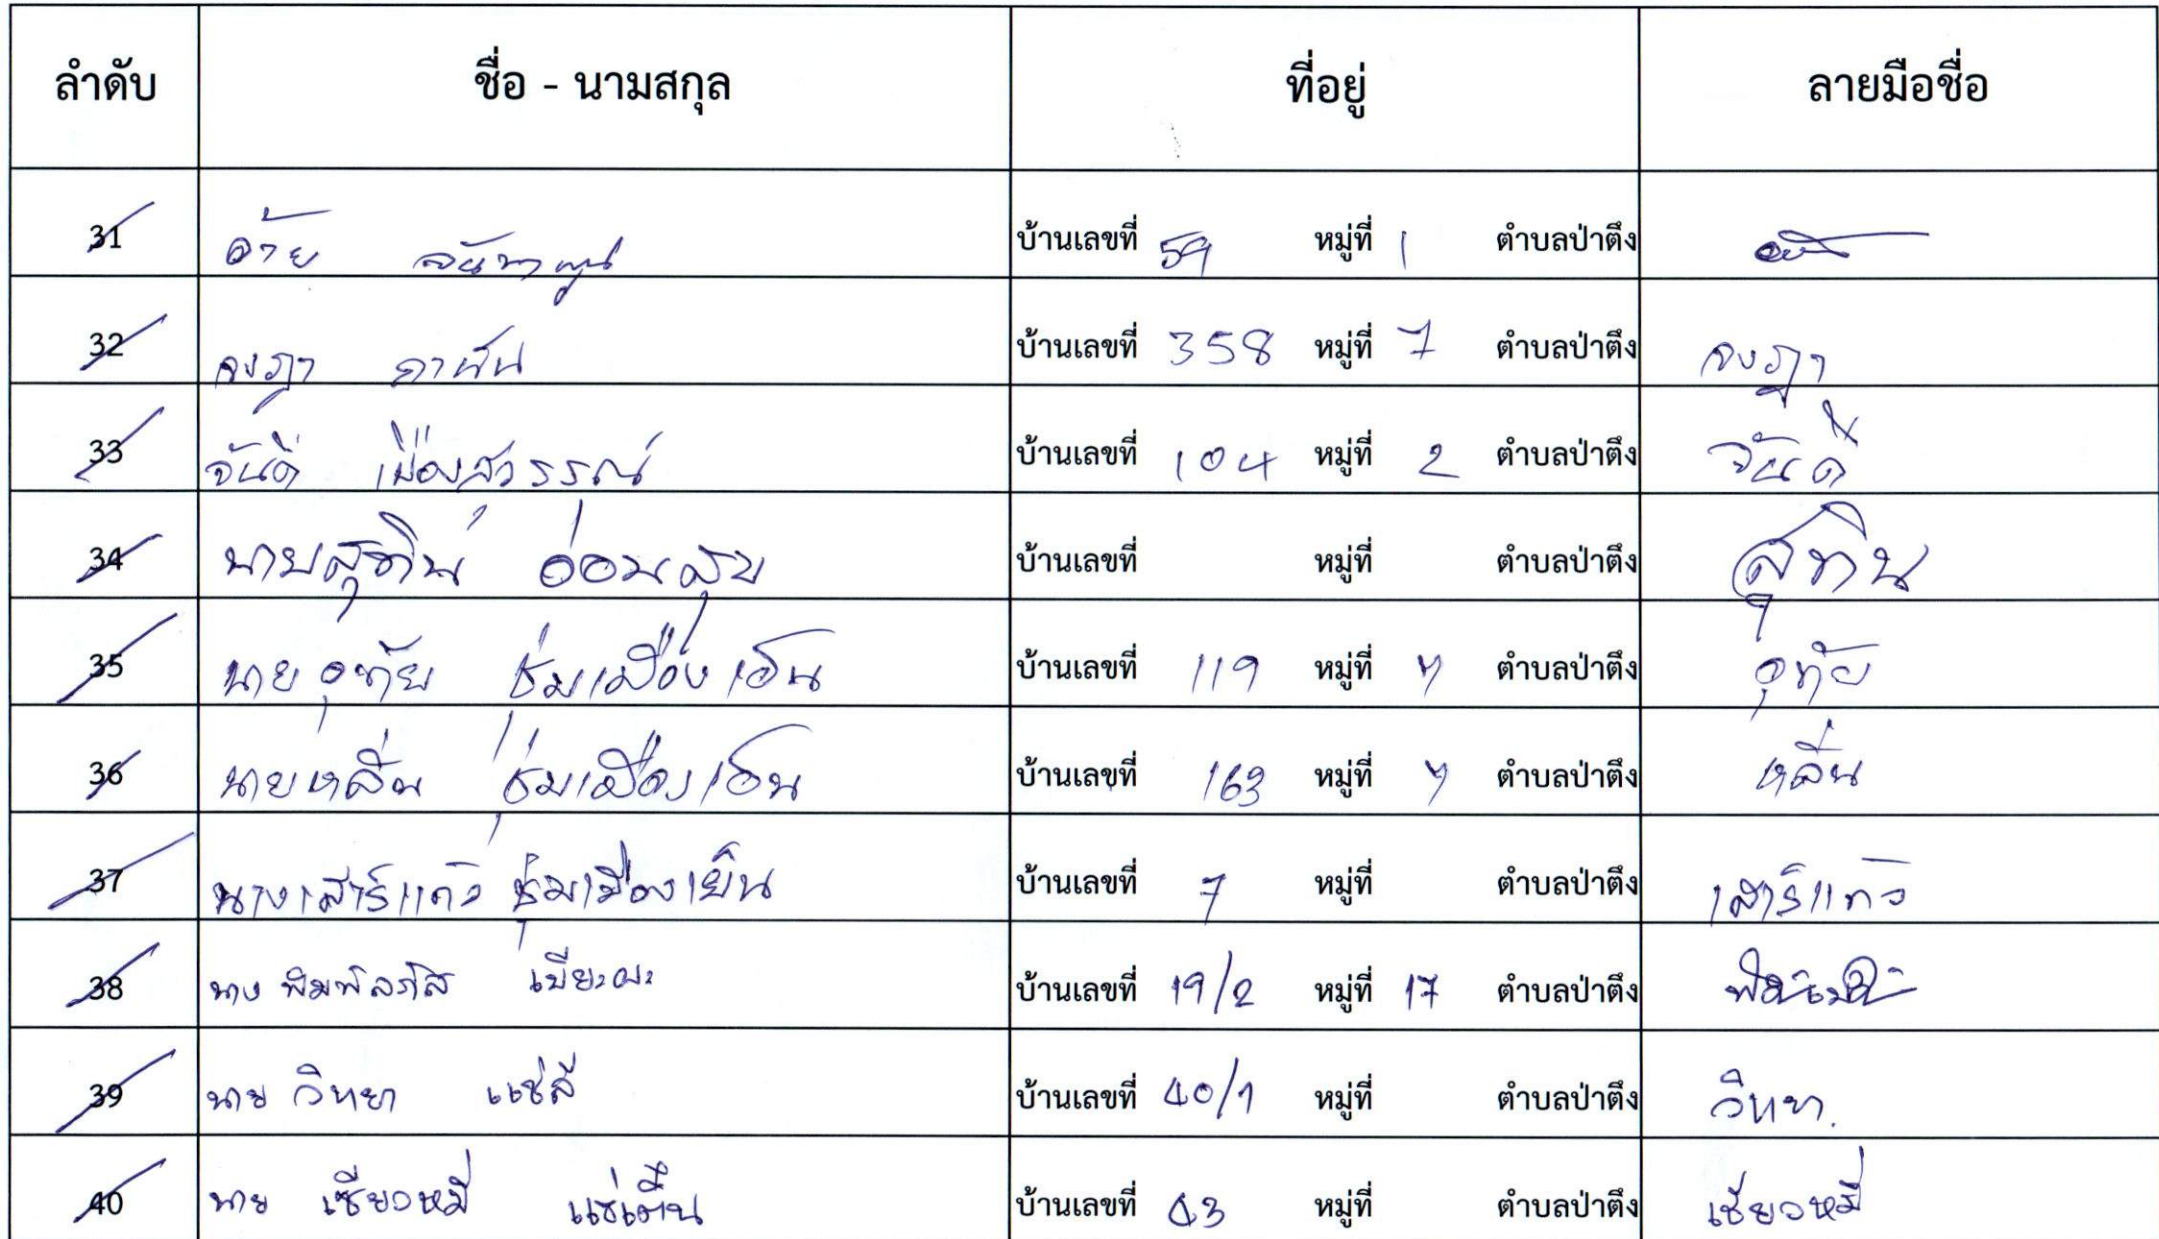 ลำดับ ชื่อ - นามสกุล ที่อยู่ ลายมือชื่อ
31 อ้าย จันทาพูน บ้านเลขที่ 59 หมู่ที่ 1 ตำบลป่าตึง
32 จงฎา กาฟัน บ้านเลขที่ 358 หมู่ที่ 7 ตำบลป่าตึง จงฎา
33 จันดี เมืองสวรรณ์ บ้านเลขที่ 104 หมู่ที่ 2 ตำบลป่าตึง จันดี
34 นายสุทิน อ่อนสุข บ้านเลขที่ หมู่ที่ ตำบลป่าตึง สุทิน
35 นายอุทัย ชุ่มเมืองเย็น บ้านเลขที่ 119 หมู่ที่ 7 ตำบลป่าตึง อุทัย
36 นายหลื่น ชุ่มเมืองเย็น บ้านเลขที่ 163 หมู่ที่ 7 ตำบลป่าตึง หลื่น
37 นางเสาร์แก้ว ชุ่มเมืองเย็น บ้านเลขที่ 7 หมู่ที่ ตำบลป่าตึง เสาร์แก้ว
38 นาง พิมพ์ลภัส เบียะผะ บ้านเลขที่ 19/2 หมู่ที่ 17 ตำบลป่าตึง
39 นาย วิทยา แซ่ลี บ้านเลขที่ 40/1 หมู่ที่ ตำบลป่าตึง วิทยา.
40 นาย เซียวหมี่ แซ่เติ๋น บ้านเลขที่ 43 หมู่ที่ ตำบลป่าตึง เซียวหมี่